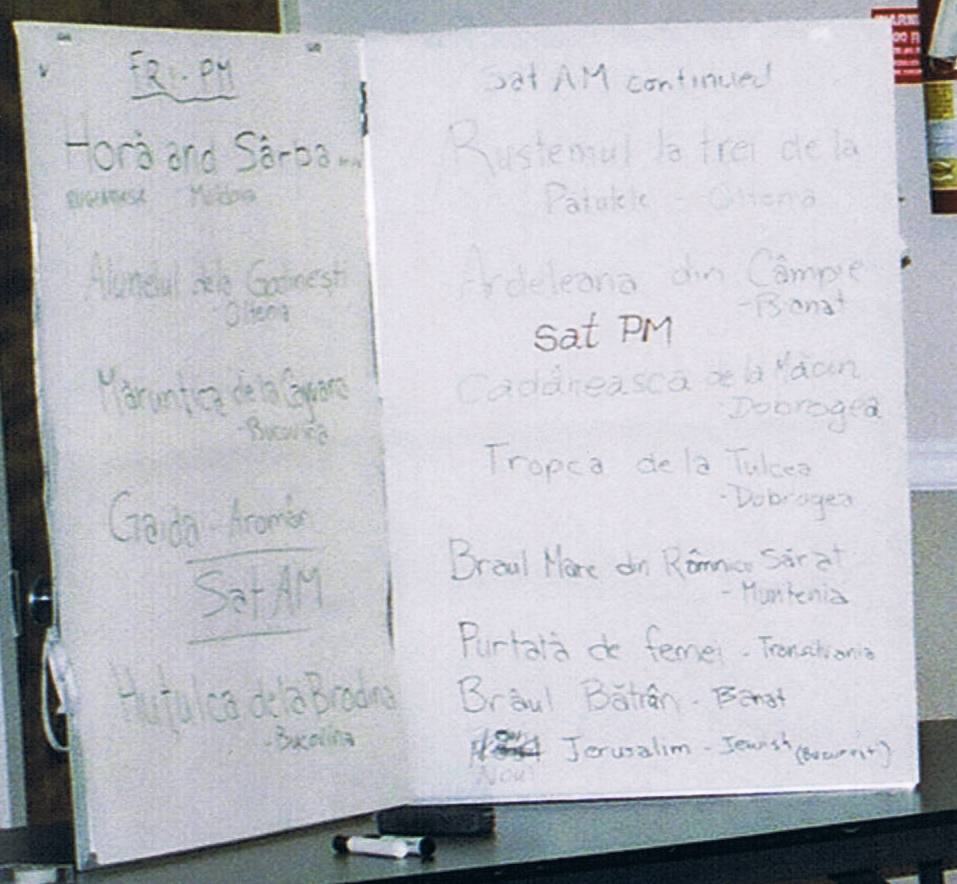 FRI. PM
Horă and Sârba...
Moldova
Alunelul dela Godinești
Oltenia
Măruntica de la
- Bucovina
Gaida - Aromân
Sat AM
Huțulca dela Brodina
- Bucovina
Sat AM continued
Rustemul la trei de la
Pătulele - Oltenia
Ardeleana din Câmpie
- Banat
Sat PM
Cadânească de la Măcin
Dobrogea
Tropca de la Tulcea
- Dobrogea
Braul Mare din Râmnicu Sărat
- Muntenia
Purtată de femei - Transilvania
Brâul Bătrân - Banat
Jerusalim - Jewish
Nou
WARNI